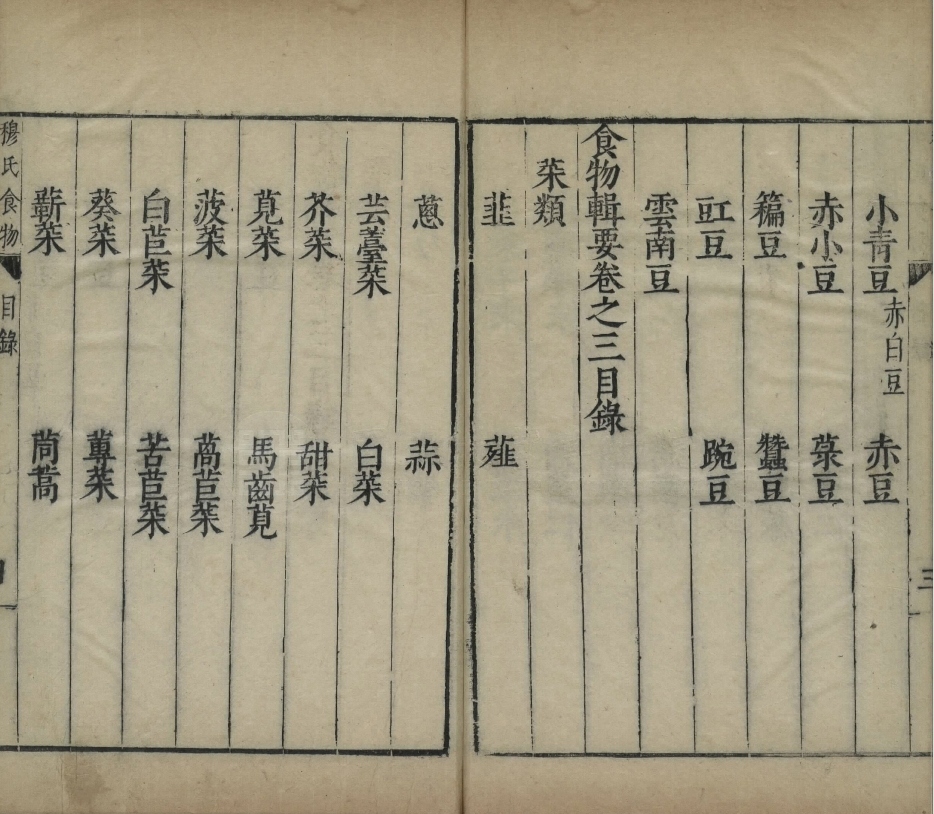 三
小青豆 赤白豆 赤豆
赤小豆 菉豆
藊豆 蠶豆
豇豆 豌豆
雲南豆
食物輯要卷之三目錄
菜類
韭 薤
蔥 蒜
芸薹菜 白菜
芥菜 甜菜
莧菜 馬齒莧
菠菜 萵苣菜
白苣菜 苦苣菜
葵菜 蓴菜
蘄菜 茼蒿
穆氏食物 目錄